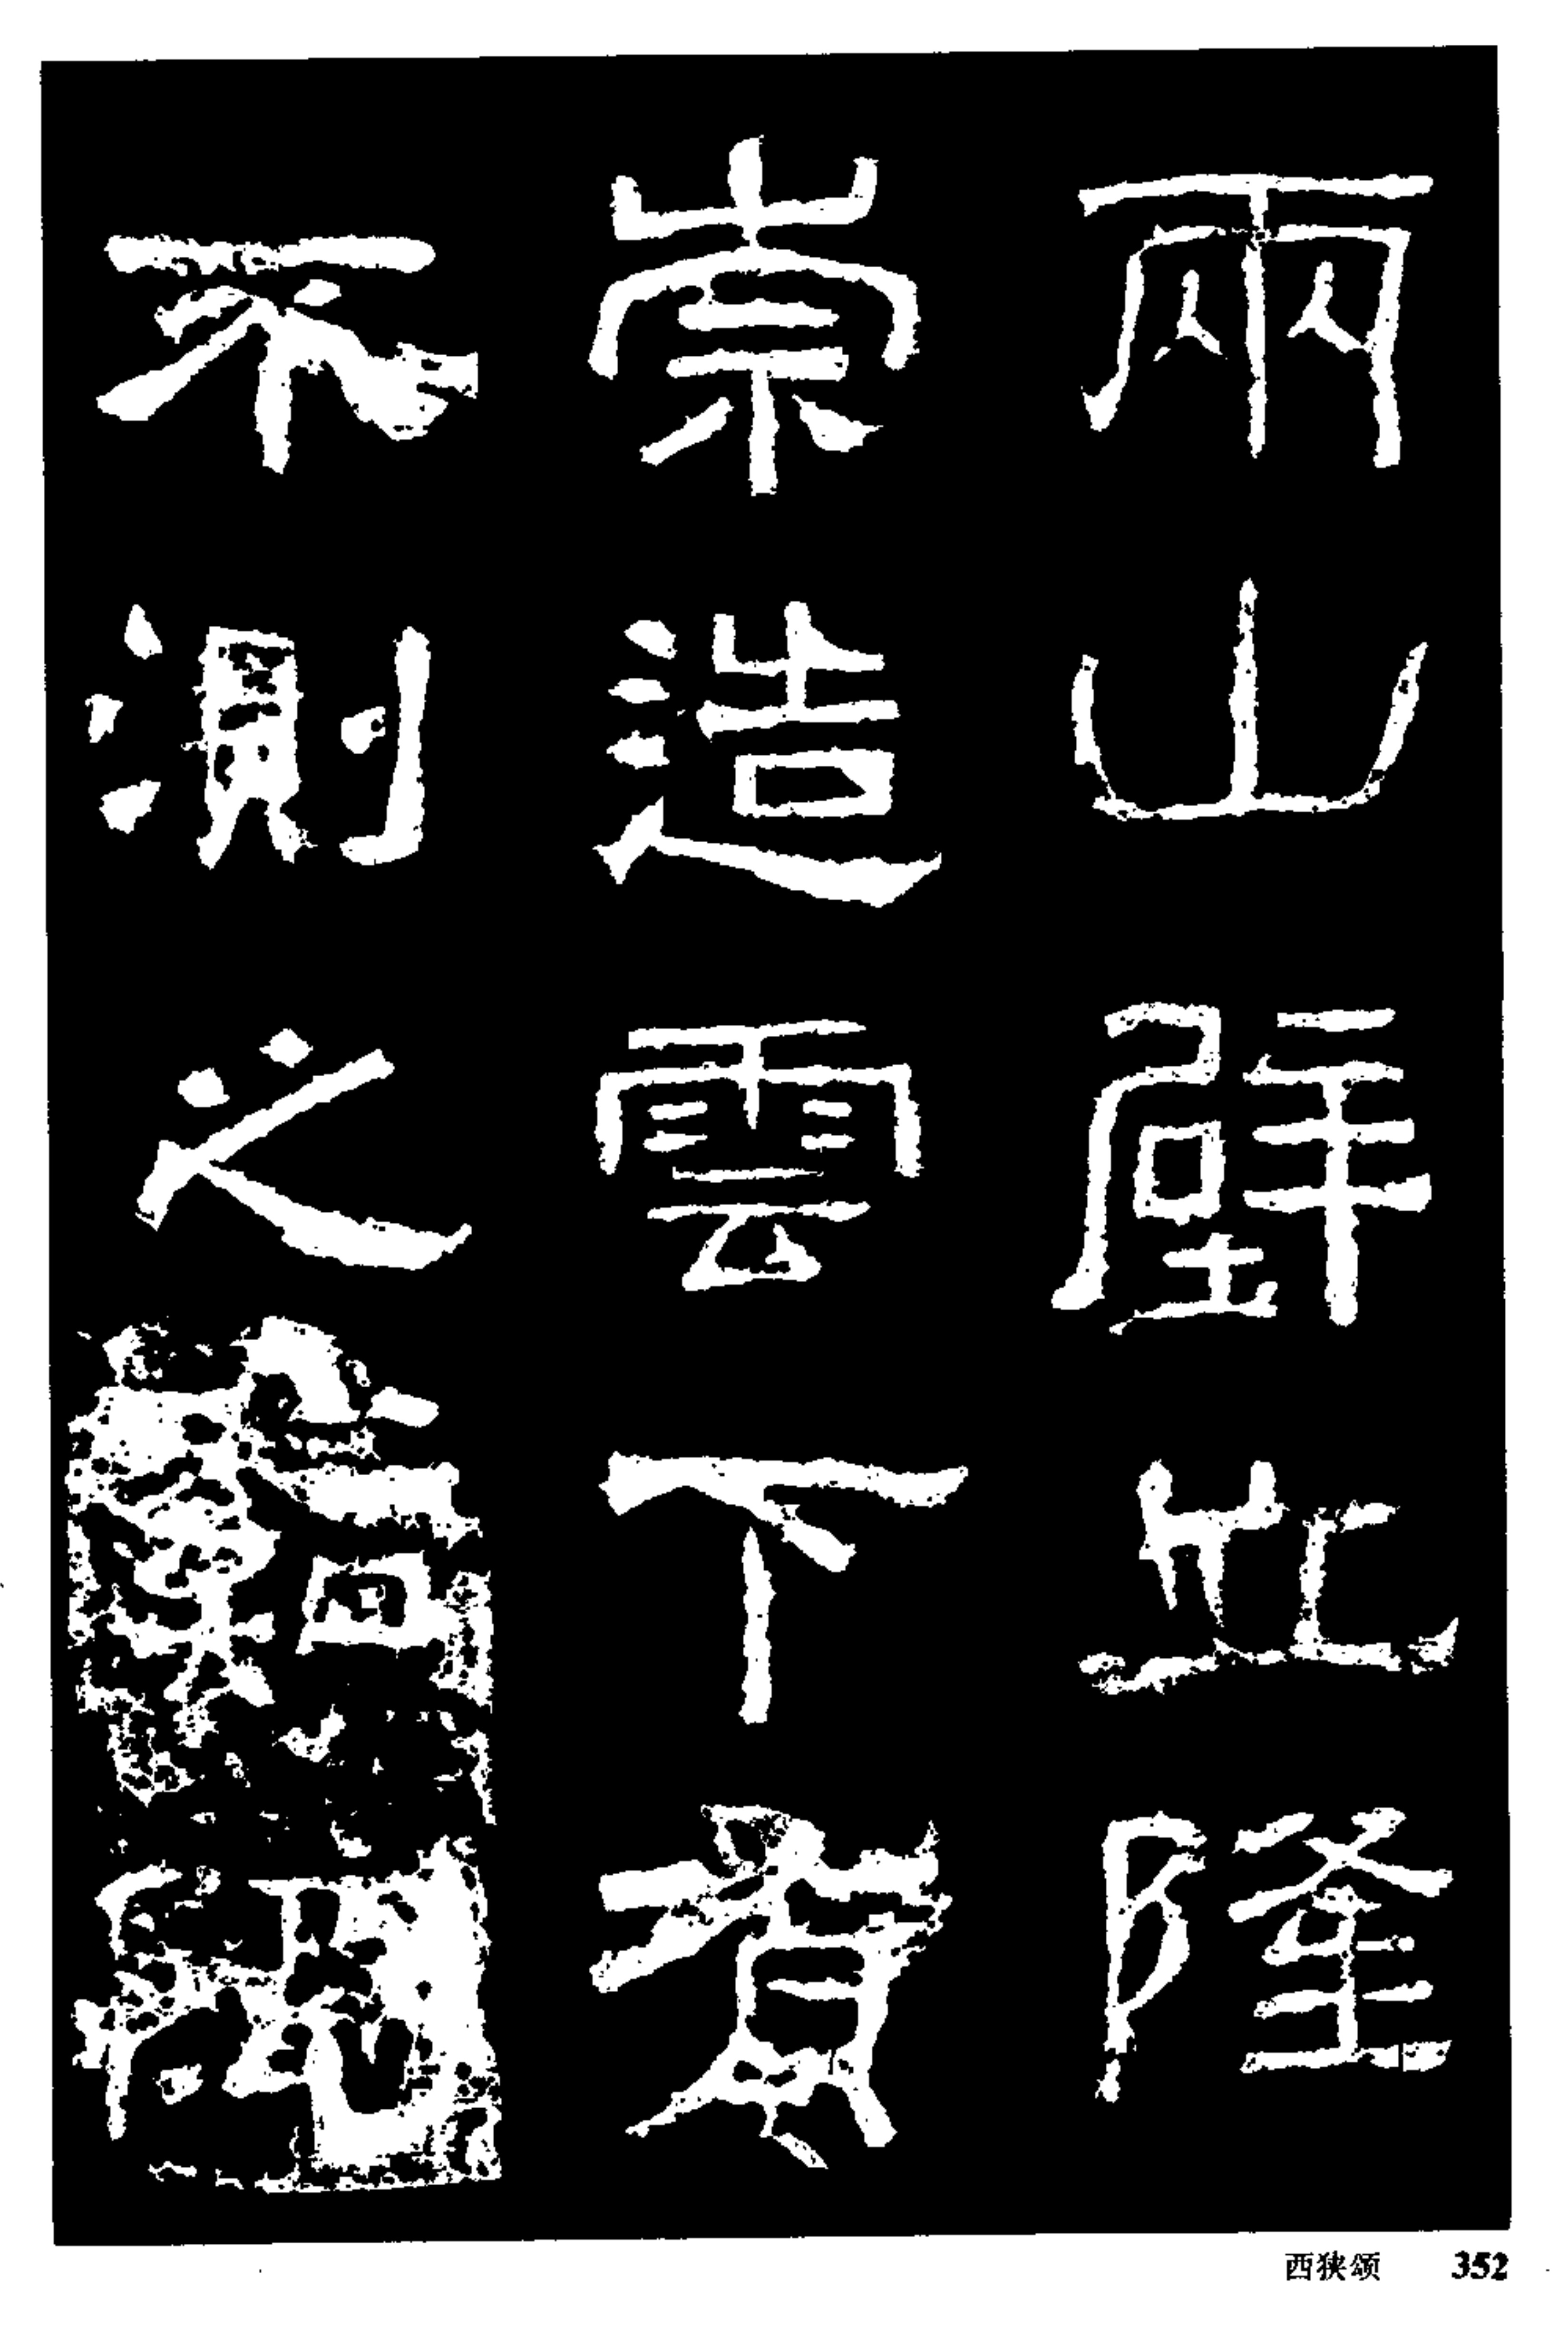 兩山壁立隆
崇造雲下有
不測之谿阨
西狭颂 352